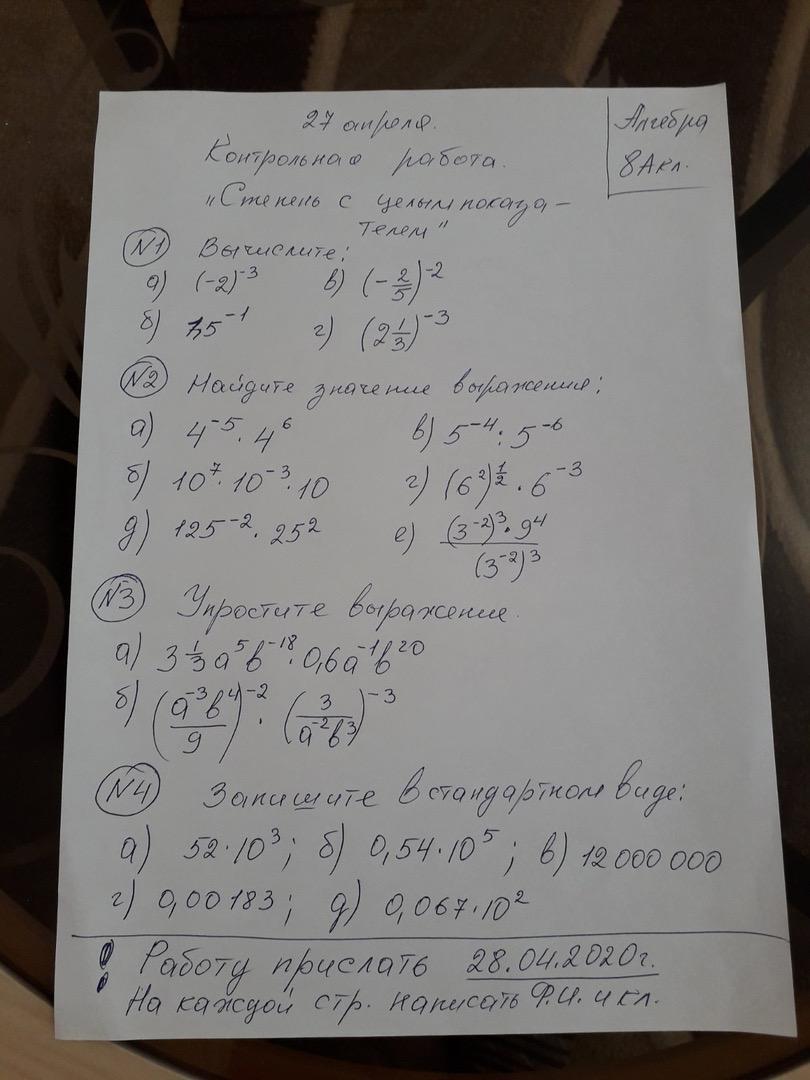 27 апреля.
Алгебра
8А кл.
Контрольная работа.
„Степень с целым показа-
телем"
№1 Вычислите:
а) (-2)⁻³ в) (-2/5)⁻²
б) 15⁻¹ г) (2 1/3)⁻³
№2 Найдите значение выражения:
а) 4⁻⁵ · 4⁶ в) 5⁻⁴ : 5⁻⁶
б) 10⁷ · 10⁻³ · 10 г) (6²)^(1/2) · 6⁻³
д) 125⁻² · 25² е) (3⁻²)³ · 9⁴ / (3⁻²)³
№3 Упростите выражение.
а) 3 1/3 a⁵b⁻¹⁸ · 0,6a⁻¹b²⁰
б) (a⁻³b⁴/9)⁻² · (3/a⁻²b³)⁻³
№4 Запишите в стандартном виде:
а) 52·10³; б) 0,54·10⁵; в) 12 000 000
г) 0,00183; д) 0,067·10²
! Работу прислать 28.04.2020г.
На каждой стр. написать Ф.И. и кл.